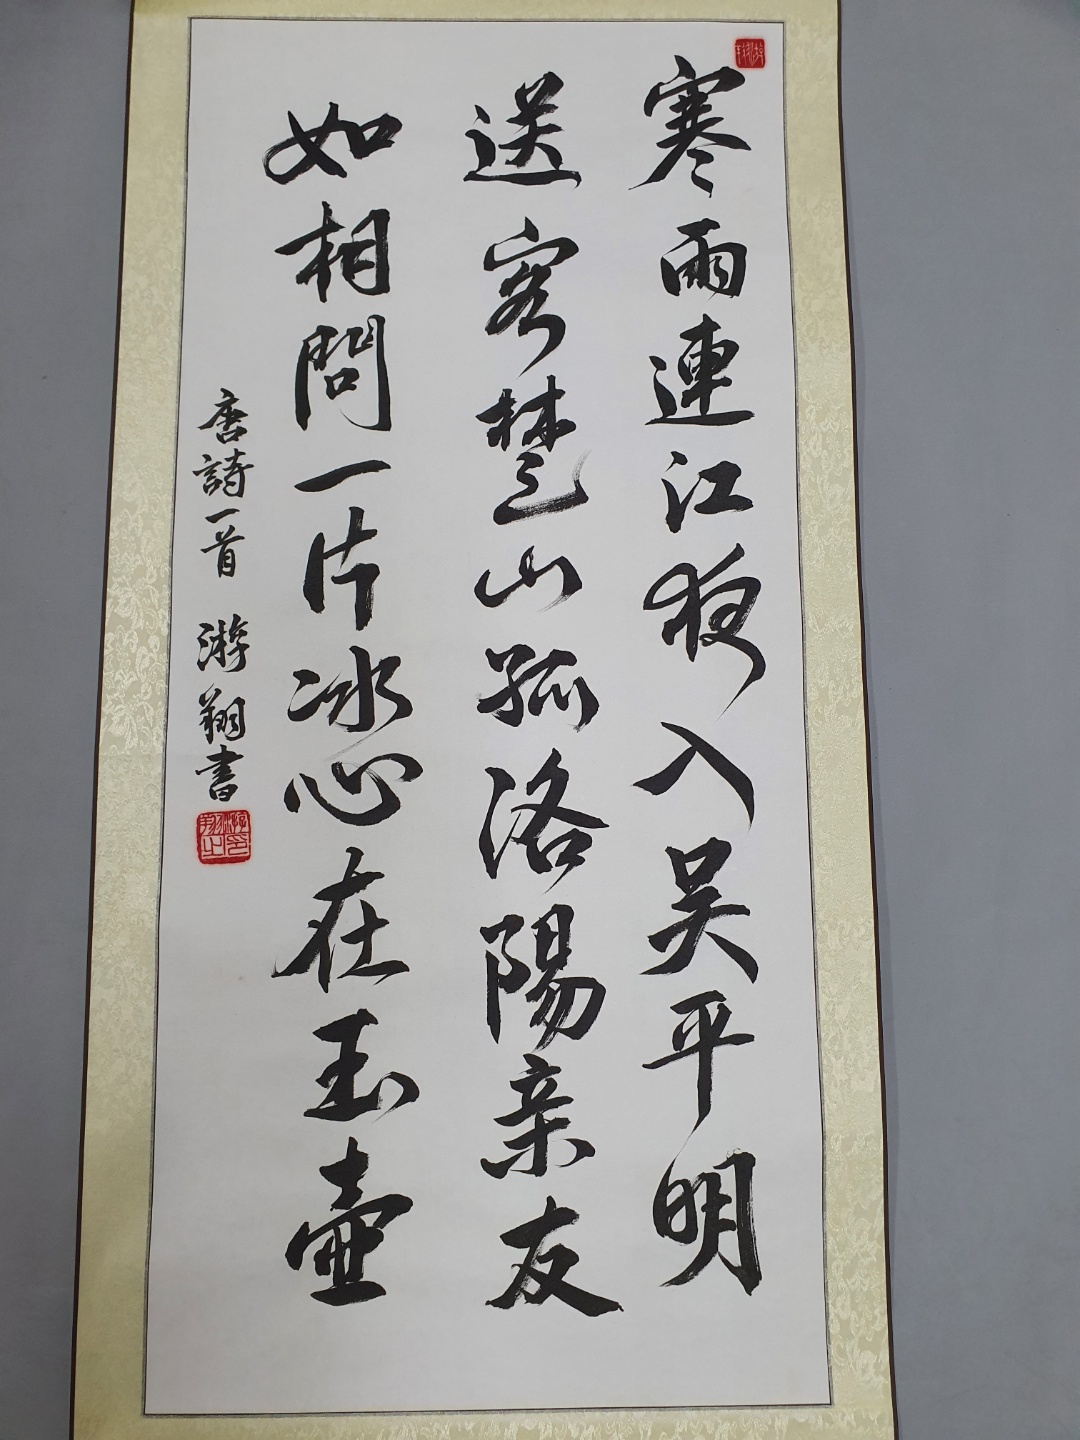 寒雨連江夜入吴平明
送客楚山孤洛陽亲友
如相問一片冰心在玉壺
唐詩一首 游翔書